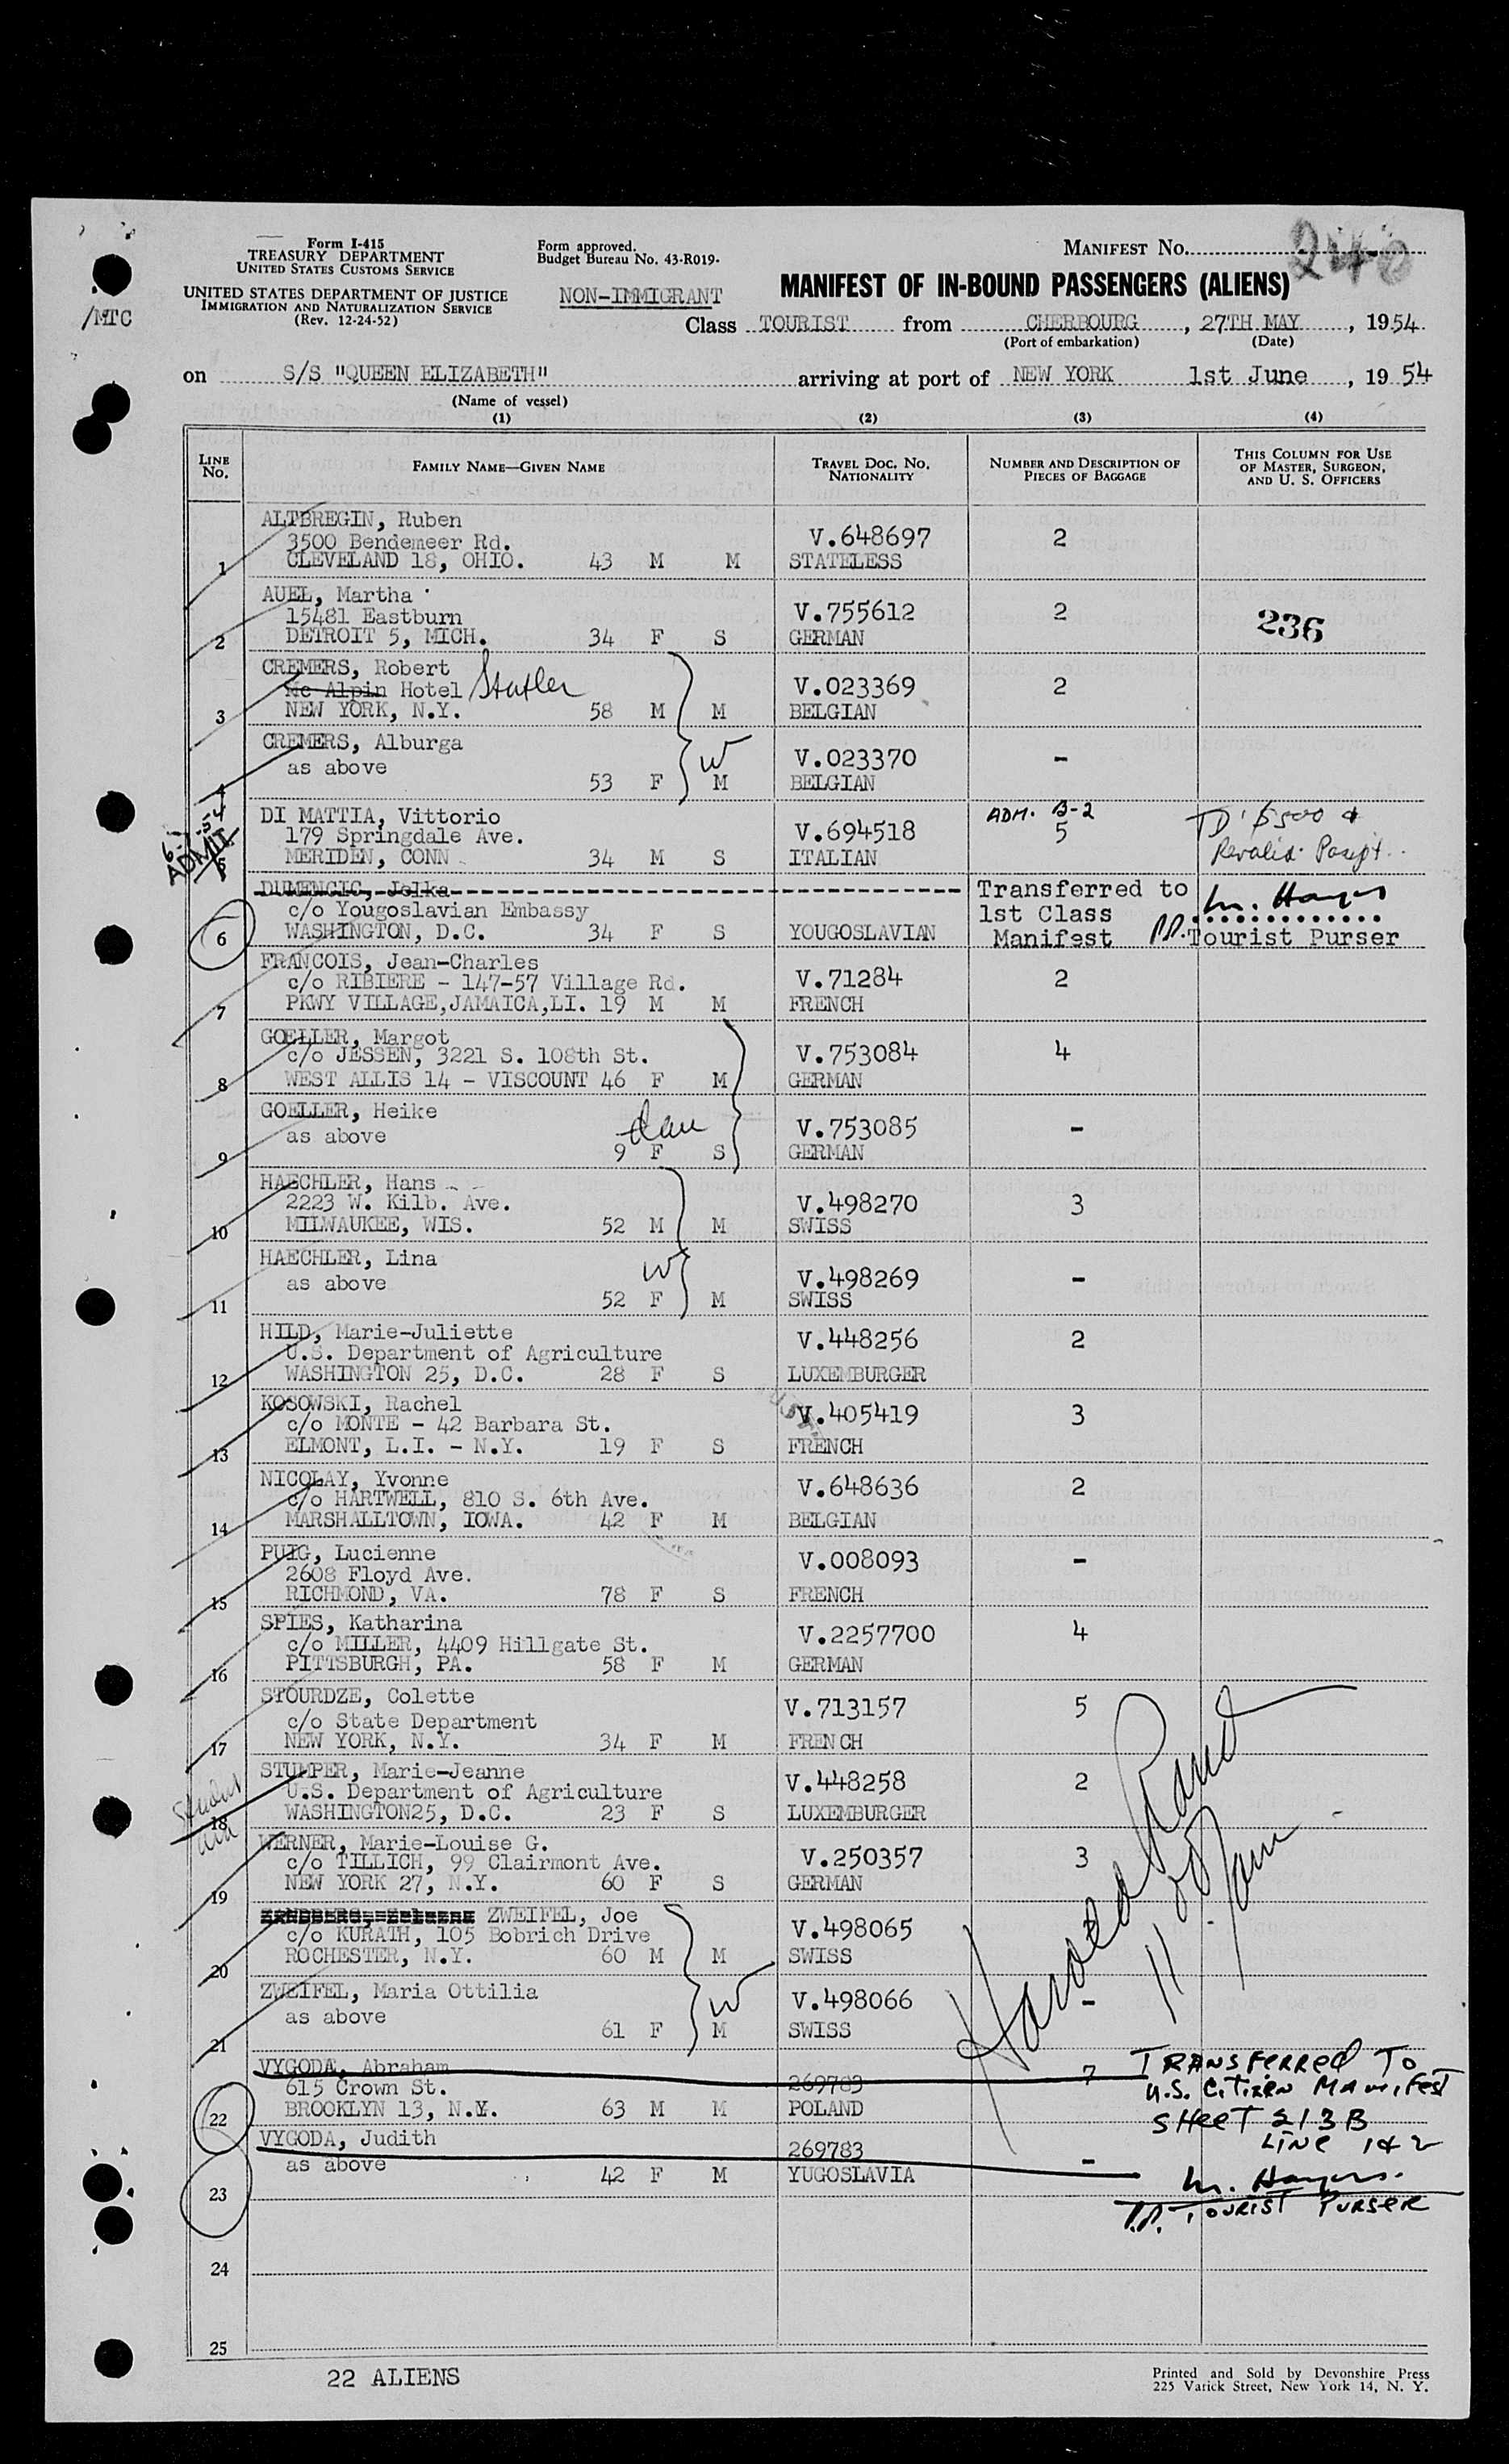 Form I-415
TREASURY DEPARTMENT
UNITED STATES CUSTOMS SERVICE
UNITED STATES DEPARTMENT OF JUSTICE
IMMIGRATION AND NATURALIZATION SERVICE
(Rev. 12-24-52)
/MTC
Form approved.
Budget Bureau No. 43-R019-
NON-IMMIGRANT
MANIFEST No.
MANIFEST OF IN-BOUND PASSENGERS (ALIENS)
Class TOURIST from CHERBOURG, 27TH MAY, 1954
(Port of embarkation) (Date)
on S/S "QUEEN ELIZABETH" arriving at port of NEW YORK 1st June, 1954
(Name of vessel)
(1) (2) (3) (4)
LINE No. FAMILY NAME—GIVEN NAME TRAVEL DOC. No. NATIONALITY NUMBER AND DESCRIPTION OF PIECES OF BAGGAGE THIS COLUMN FOR USE OF MASTER, SURGEON, AND U. S. OFFICERS
ALTBREGIN, Ruben
3500 Bendemeer Rd. V.648697 2
1 CLEVELAND 18, OHIO. 43 M M STATELESS
AUEL, Martha
15481 Eastburn V.755612 2 236
2 DETROIT 5, MICH. 34 F S GERMAN
CREMERS, Robert
Mc Alpin Hotel Statler V.023369 2
3 NEW YORK, N.Y. 58 M M BELGIAN
CREMERS, Alburga
as above W V.023370 -
4 53 F M BELGIAN
DI MATTIA, Vittorio ADM. B-2 TD $500 &
179 Springdale Ave. V.694518 5
ADMIT 5 MERIDEN, CONN 34 M S ITALIAN Revalid. Paspt.
DUMENCIC, Jelka Transferred to M. Hayes
c/o Yougoslavian Embassy 1st Class
6 WASHINGTON, D.C. 34 F S YOUGOSLAVIAN Manifest P.P. Tourist Purser
FRANCOIS, Jean-Charles
c/o RIBIERE - 147-57 Village Rd. V.71284 2
7 PKWY VILLAGE,JAMAICA,LI. 19 M M FRENCH
GOELLER, Margot
c/o JESSEN, 3221 S. 108th St. V.753084 4
8 WEST ALLIS 14 - VISCOUNT 46 F M GERMAN
GOELLER, Heike
as above dau V.753085 -
9 9 F S GERMAN
HAECHLER, Hans
2223 W. Kilb. Ave. V.498270 3
10 MILWAUKEE, WIS. 52 M M SWISS
HAECHLER, Lina
as above W V.498269 -
11 52 F M SWISS
HILD, Marie-Juliette V.448256 2
U.S. Department of Agriculture
12 WASHINGTON 25, D.C. 28 F S LUXEMBURGER
KOSOWSKI, Rachel
c/o MONTE - 42 Barbara St. V.405419 3
13 ELMONT, L.I. - N.Y. 19 F S FRENCH
NICOLAY, Yvonne
c/o HARTWELL, 810 S. 6th Ave. V.648636 2
14 MARSHALLTOWN, IOWA. 42 F M BELGIAN
PUIG, Lucienne V.008093 -
2608 Floyd Ave.
15 RICHMOND, VA. 78 F S FRENCH
SPIES, Katharina
c/o MILLER, 4409 Hillgate St. V.2257700 4
16 PITTSBURGH, PA. 58 F M GERMAN
STOURDZE, Colette V.713157 5
c/o State Department
17 NEW YORK, N.Y. 34 F M FRENCH
STUMPER, Marie-Jeanne V.448258 2
U.S. Department of Agriculture
18 WASHINGTON25, D.C. 23 F S LUXEMBURGER
WERNER, Marie-Louise G.
c/o TILLICH, 99 Clairmont Ave. V.250357 3
19 NEW YORK 27, N.Y. 60 F S GERMAN
ZWEIFEL, Joe
c/o KURATH, 105 Bobrich Drive V.498065
20 ROCHESTER, N.Y. 60 M M SWISS
ZWEIFEL, Maria Ottilia
as above W V.498066 -
21 61 F M SWISS
VYGODA, Abraham 269783 7 TRANSFERRED TO
615 Crown St. U.S. CITIZEN MANIFEST
22 BROOKLYN 13, N.Y. 63 M M POLAND SHEET 213B
VYGODA, Judith 269783 LINE 1 & 2
as above -
23 42 F M YUGOSLAVIA M. Hayes.
P.P. TOURIST PURSER
24
25
22 ALIENS
Printed and Sold by Devonshire Press
225 Varick Street, New York 14, N. Y.